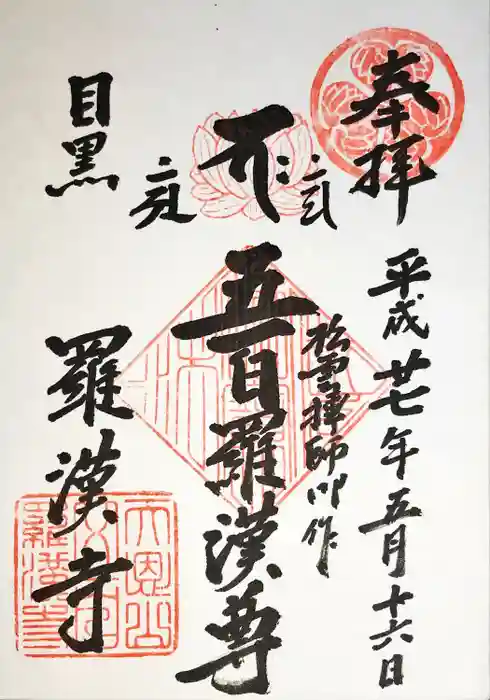 奉拝
平成廿七年五月十六日
松雲禅師作
五百羅漢尊
目黒
羅漢寺